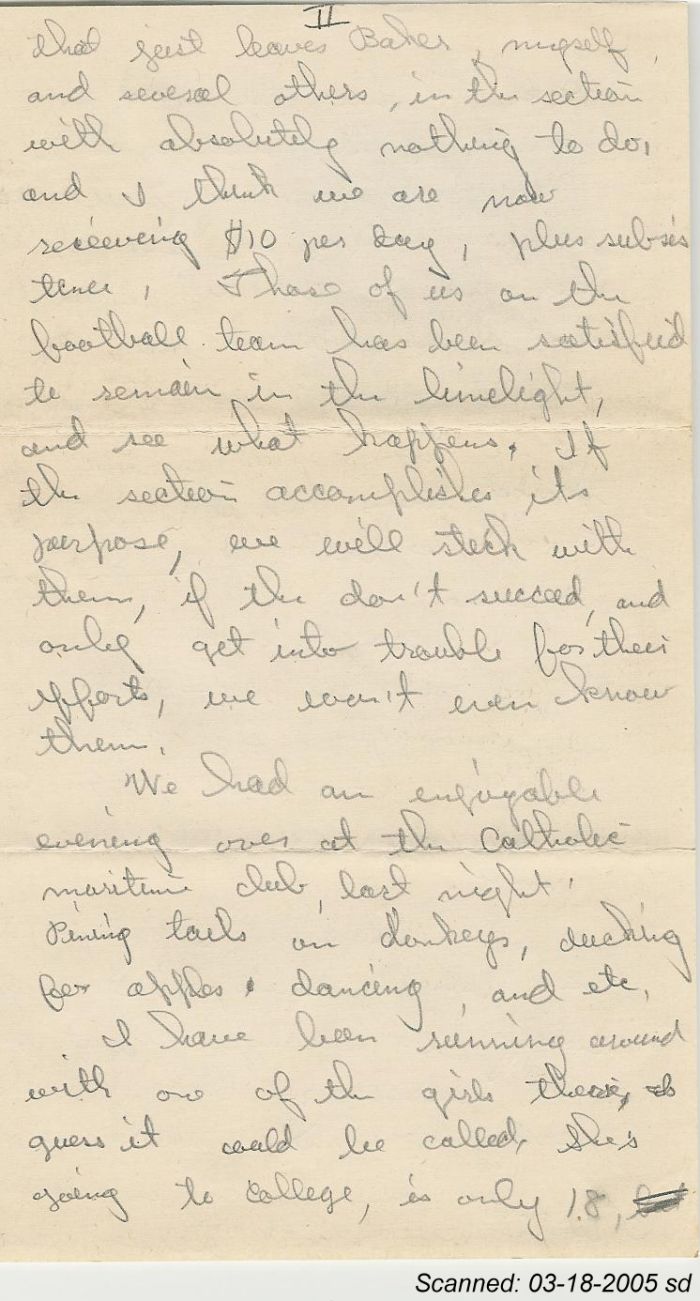 II
that just leaves Baker, myself,
and several others, in the section
with absolutely nothing to do,
and I think we are now
receeving $10 per day, plus subsis
tence, Those of us on the
football team has been satisfied
to remain in the limelight,
and see what happens. If
the section accomplishes its
purpose, we will stick with
them, if the don't succeed, and
only get into trouble for their
efforts, we won't even know
them.
We had an enjoyable
evening over at the Catholic
maritime club, last night.
Pining tails on donkeys, ducking
for apples, dancing, and etc.
I have been running around
with one of the girls there, as
guess it could be called, she's
going to college, is only 18,
Scanned: 03-18-2005 sd